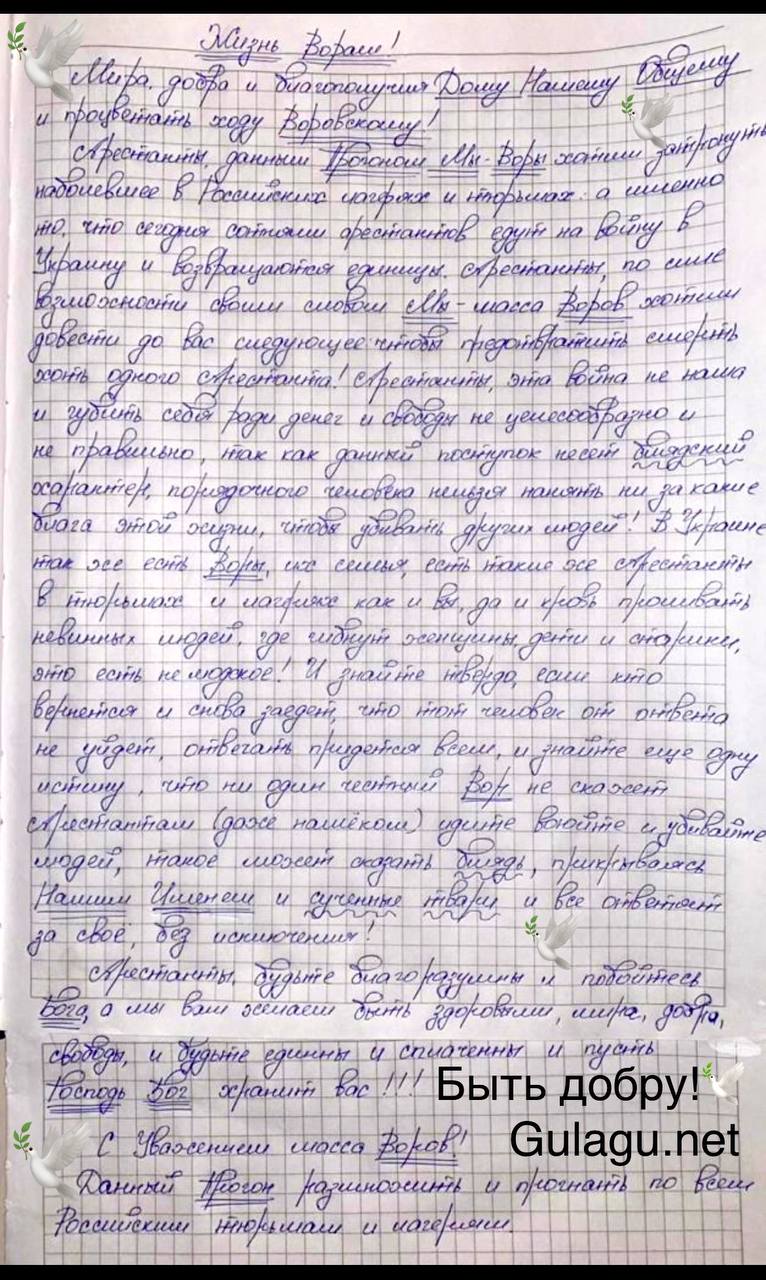 Жизнь Ворам!
Мира, добра и благополучия Дому Нашему Общему
и процветать ходу Воровскому!
Арестанты, данным Прогоном Мы-Воры хотим затронуть
наболевшее в Российских лагерях и тюрьмах: а именно
то, что сегодня сотнями арестантов едут на войну в
Украину и возвращаются единицы. Арестанты, по силе
возможности своим словом Мы-масса Воров хотим
довести до вас следующее: чтобы предотвратить смерть
хоть одного Арестанта! Арестанты, эта война не наша
и губить себя ради денег и свободы не целесообразно и
не правильно, так как данный поступок несет блядский
характер, порядочного человека нельзя нанять ни за какие
блага этой жизни, чтобы убивать других людей! В Украине
так же есть Воры, их семья, есть такие же Арестанты
в тюрьмах и лагерях как и вы, да и кровь проливать
невинных людей, где гибнут женщины, дети и старики,
это есть не людское! И знайте твердо, если кто
вернется и снова заедет, что тот человек от ответа
не уйдет, отвечать придется всем, и знайте еще одну
истину, что ни один честный Вор не скажет
Арестантам (даже намёком) идите воюйте и убивайте
людей, такое может сказать блядь, прикрываясь
Нашим Именем и сученные твари и все ответят
за своё, без исключения!
Арестанты, будьте благоразумны и побойтесь
Бога, а мы вам желаем быть здоровыми, мира, добра,
свободы, и будьте единны и сплаченны и пусть
Господь Бог хранит вас!!!
Быть добру!
Gulagu.net
С Уважением масса Воров!
Данный Прогон размножить и прогнать по всем
Российским тюрьмам и лагерям.